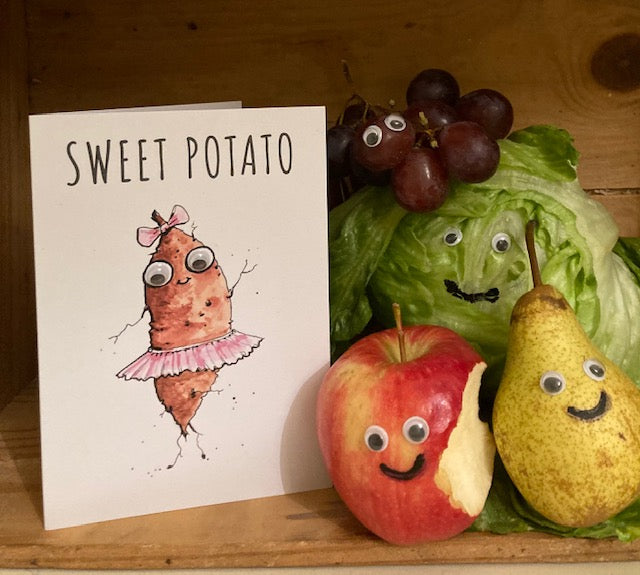 SWEET POTATO